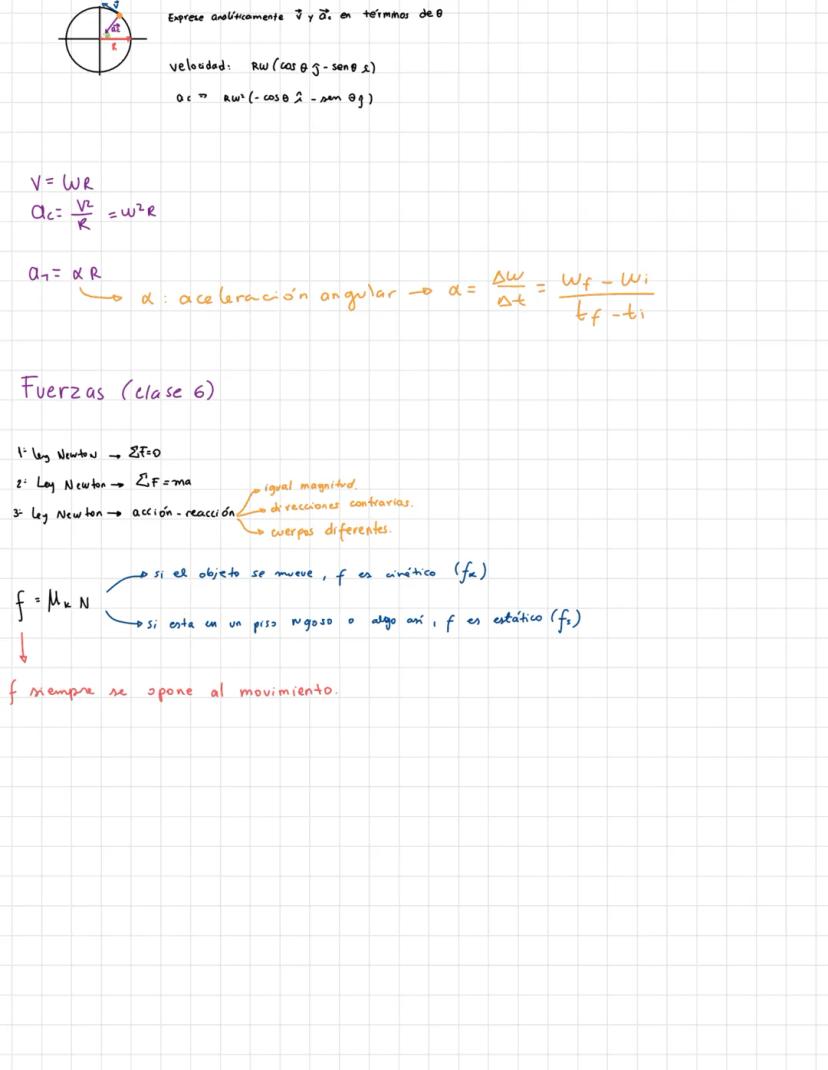 v⃗
a⃗c
R
Exprese analíticamente v⃗ y a⃗c en términos de θ
velocidad: Rω (cos θ ĵ - sen θ î)
ac = Rω² (-cos θ î - sen θ ĵ)
V = ωR
ac = V²/R = ω²R
aT = α R
α : aceleración angular → α = Δω/Δt = (ωf - ωi)/(tf - ti)
Fuerzas (clase 6)
1ª ley Newton → ΣF=0
2ª Ley Newton → ΣF = ma
igual magnitud.
3ª ley Newton → acción - reacción
direcciones contrarias.
cuerpos diferentes.
si el objeto se mueve, f es cinético (fk)
f = μk N
si esta en un piso rugoso o algo así, f es estático (fs)
f siempre se opone al movimiento.